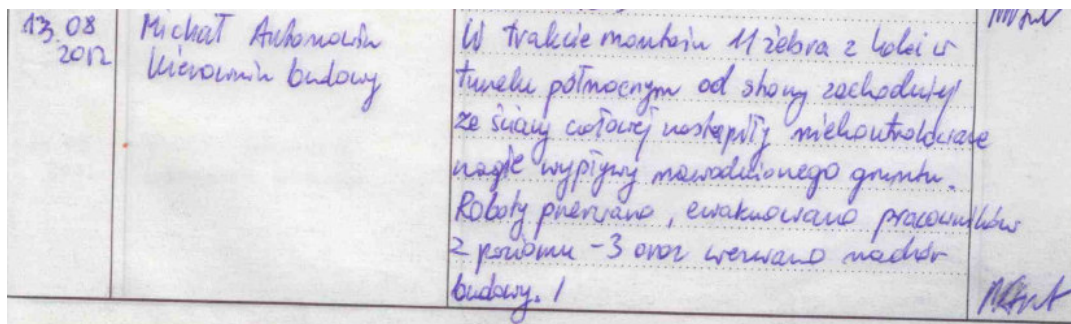 13.08
2012
Michał Antonowin
Kierownik budowy
W trakcie montażu 11 żebra z kolei w
tunelu północnym od strony zachodniej
ze ściany czołowej nastąpiły niekontrolowane
nagłe wypływy nawodnionego gruntu.
Roboty przerwano, ewakuowano pracowników
z poziomu -3 oraz wezwano nadzór
budowy. /